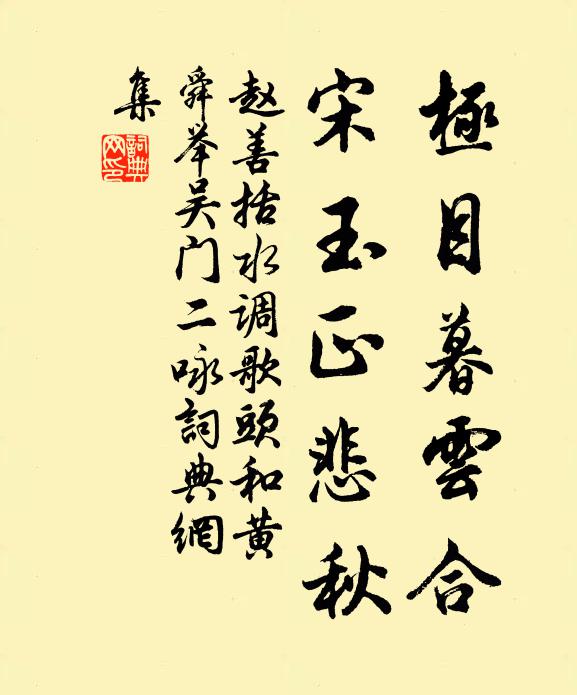 極目暮雲合
宋玉正悲秋
赵善括水调歌頭和黄
舜举吴门二咏詞典網
集
詞典
网印